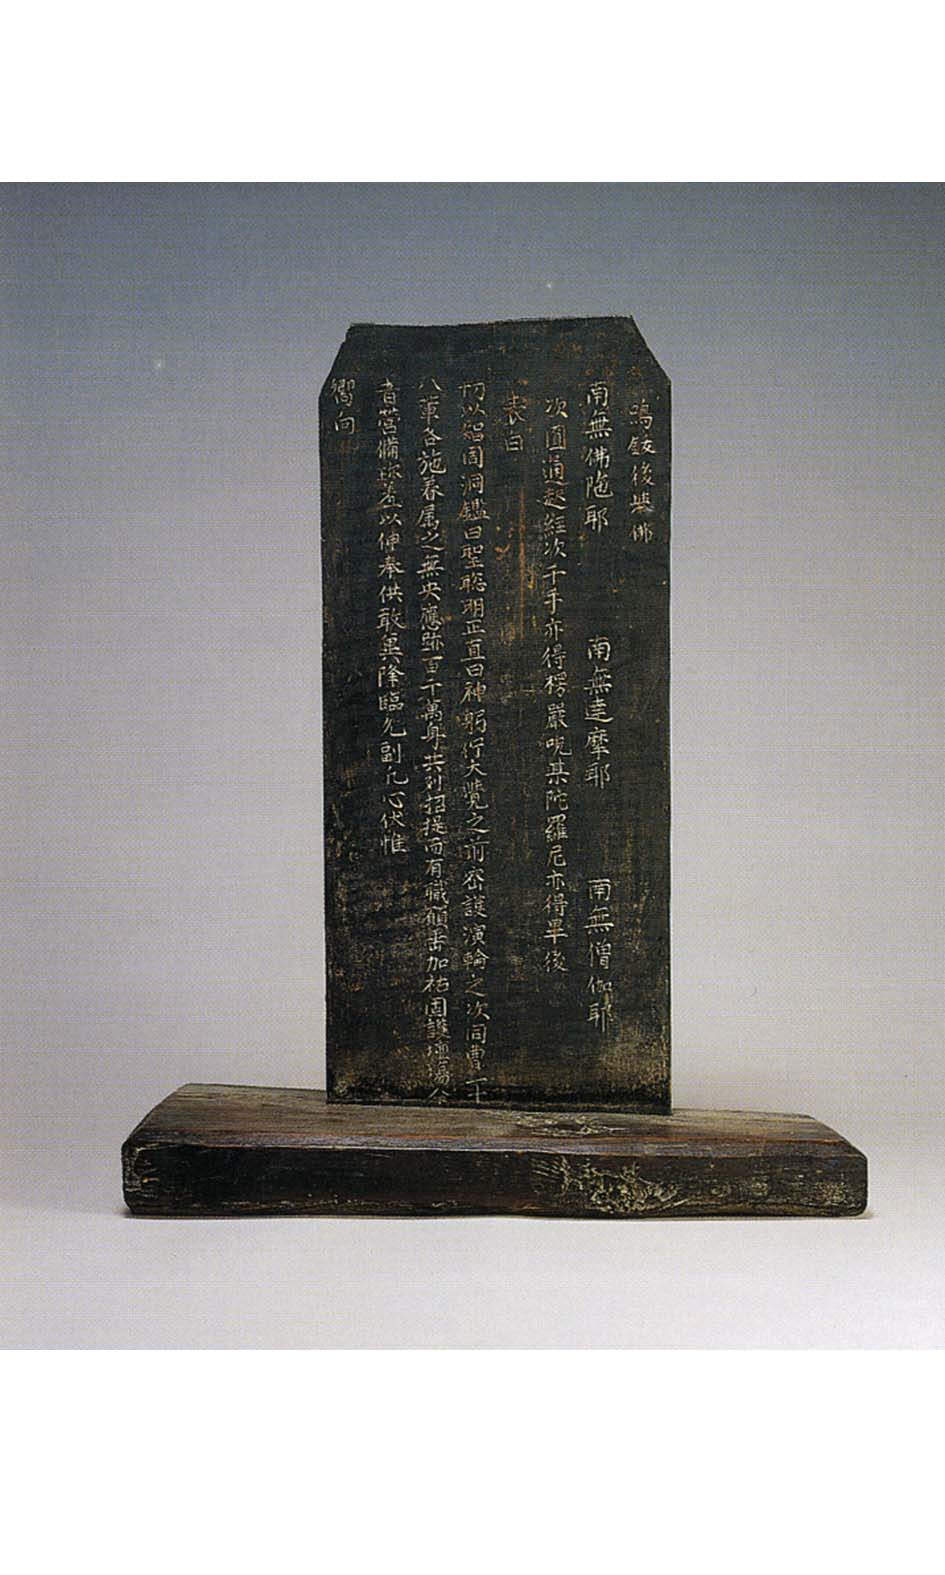 鳴鈸後喚佛
南無佛陁耶 南無達摩耶 南無僧伽耶
次圓通起経次千手亦得楞嚴呪某陀羅尼亦得畢後
表白
切以智周洞鑑曰聖聡明正直曰神躬行大覺之前密護演輪之次同曹二十
八軍各施眷属之無央應跡百千萬身共列招提而有職願垂加祐固護壇場今
者营備珎羞以伸奉供敢兾降臨允副凢心伏惟
嚮向